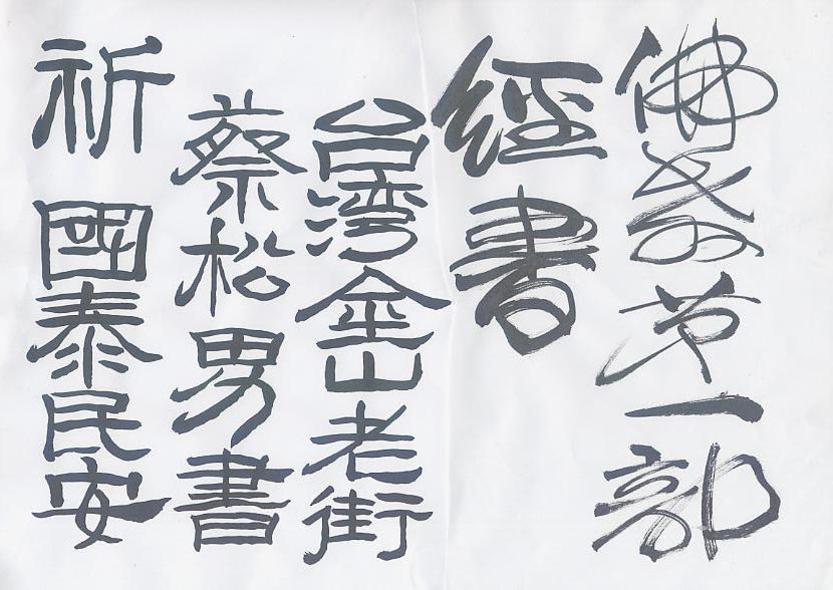 佛教第一部
經書
台湾金山老街
蔡松男書
祈 國泰民安